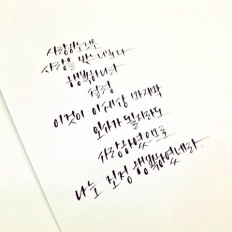 사랑하는것은
사랑을 받느니보다
행복하나니라
설령
이것이 이세상 마지막
인사가 될지라도
사랑하였으므로
나는 진정 행복하였네라